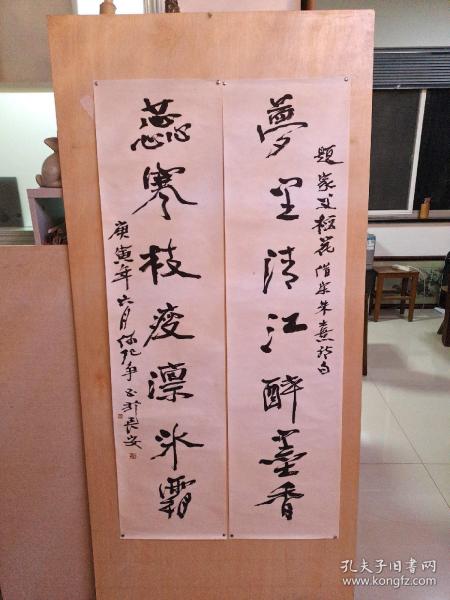 題家父梅花借宋朱熹诗句
夢里清江醉墨香
蕊寒枝瘦凛冰霜
庚寅年六月
於長安
孔夫子旧书网
www.kongfz.com